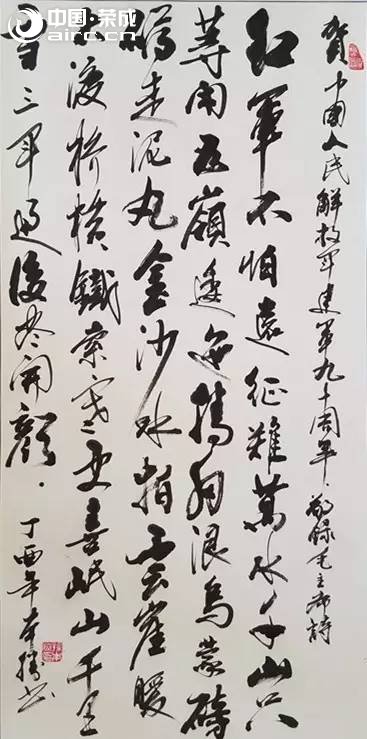 中国·荣成
airc.cn
贺中国人民解放军建军九十周年、敬録毛主席詩
红軍不怕遠征難萬水千山只
等闲五嶺逶迤腾细浪烏蒙磅
礴走泥丸金沙水拍云崖暖
大渡桥横鐵索寒更喜岷山千里
雪三軍过後尽開颜
丁酉年
书